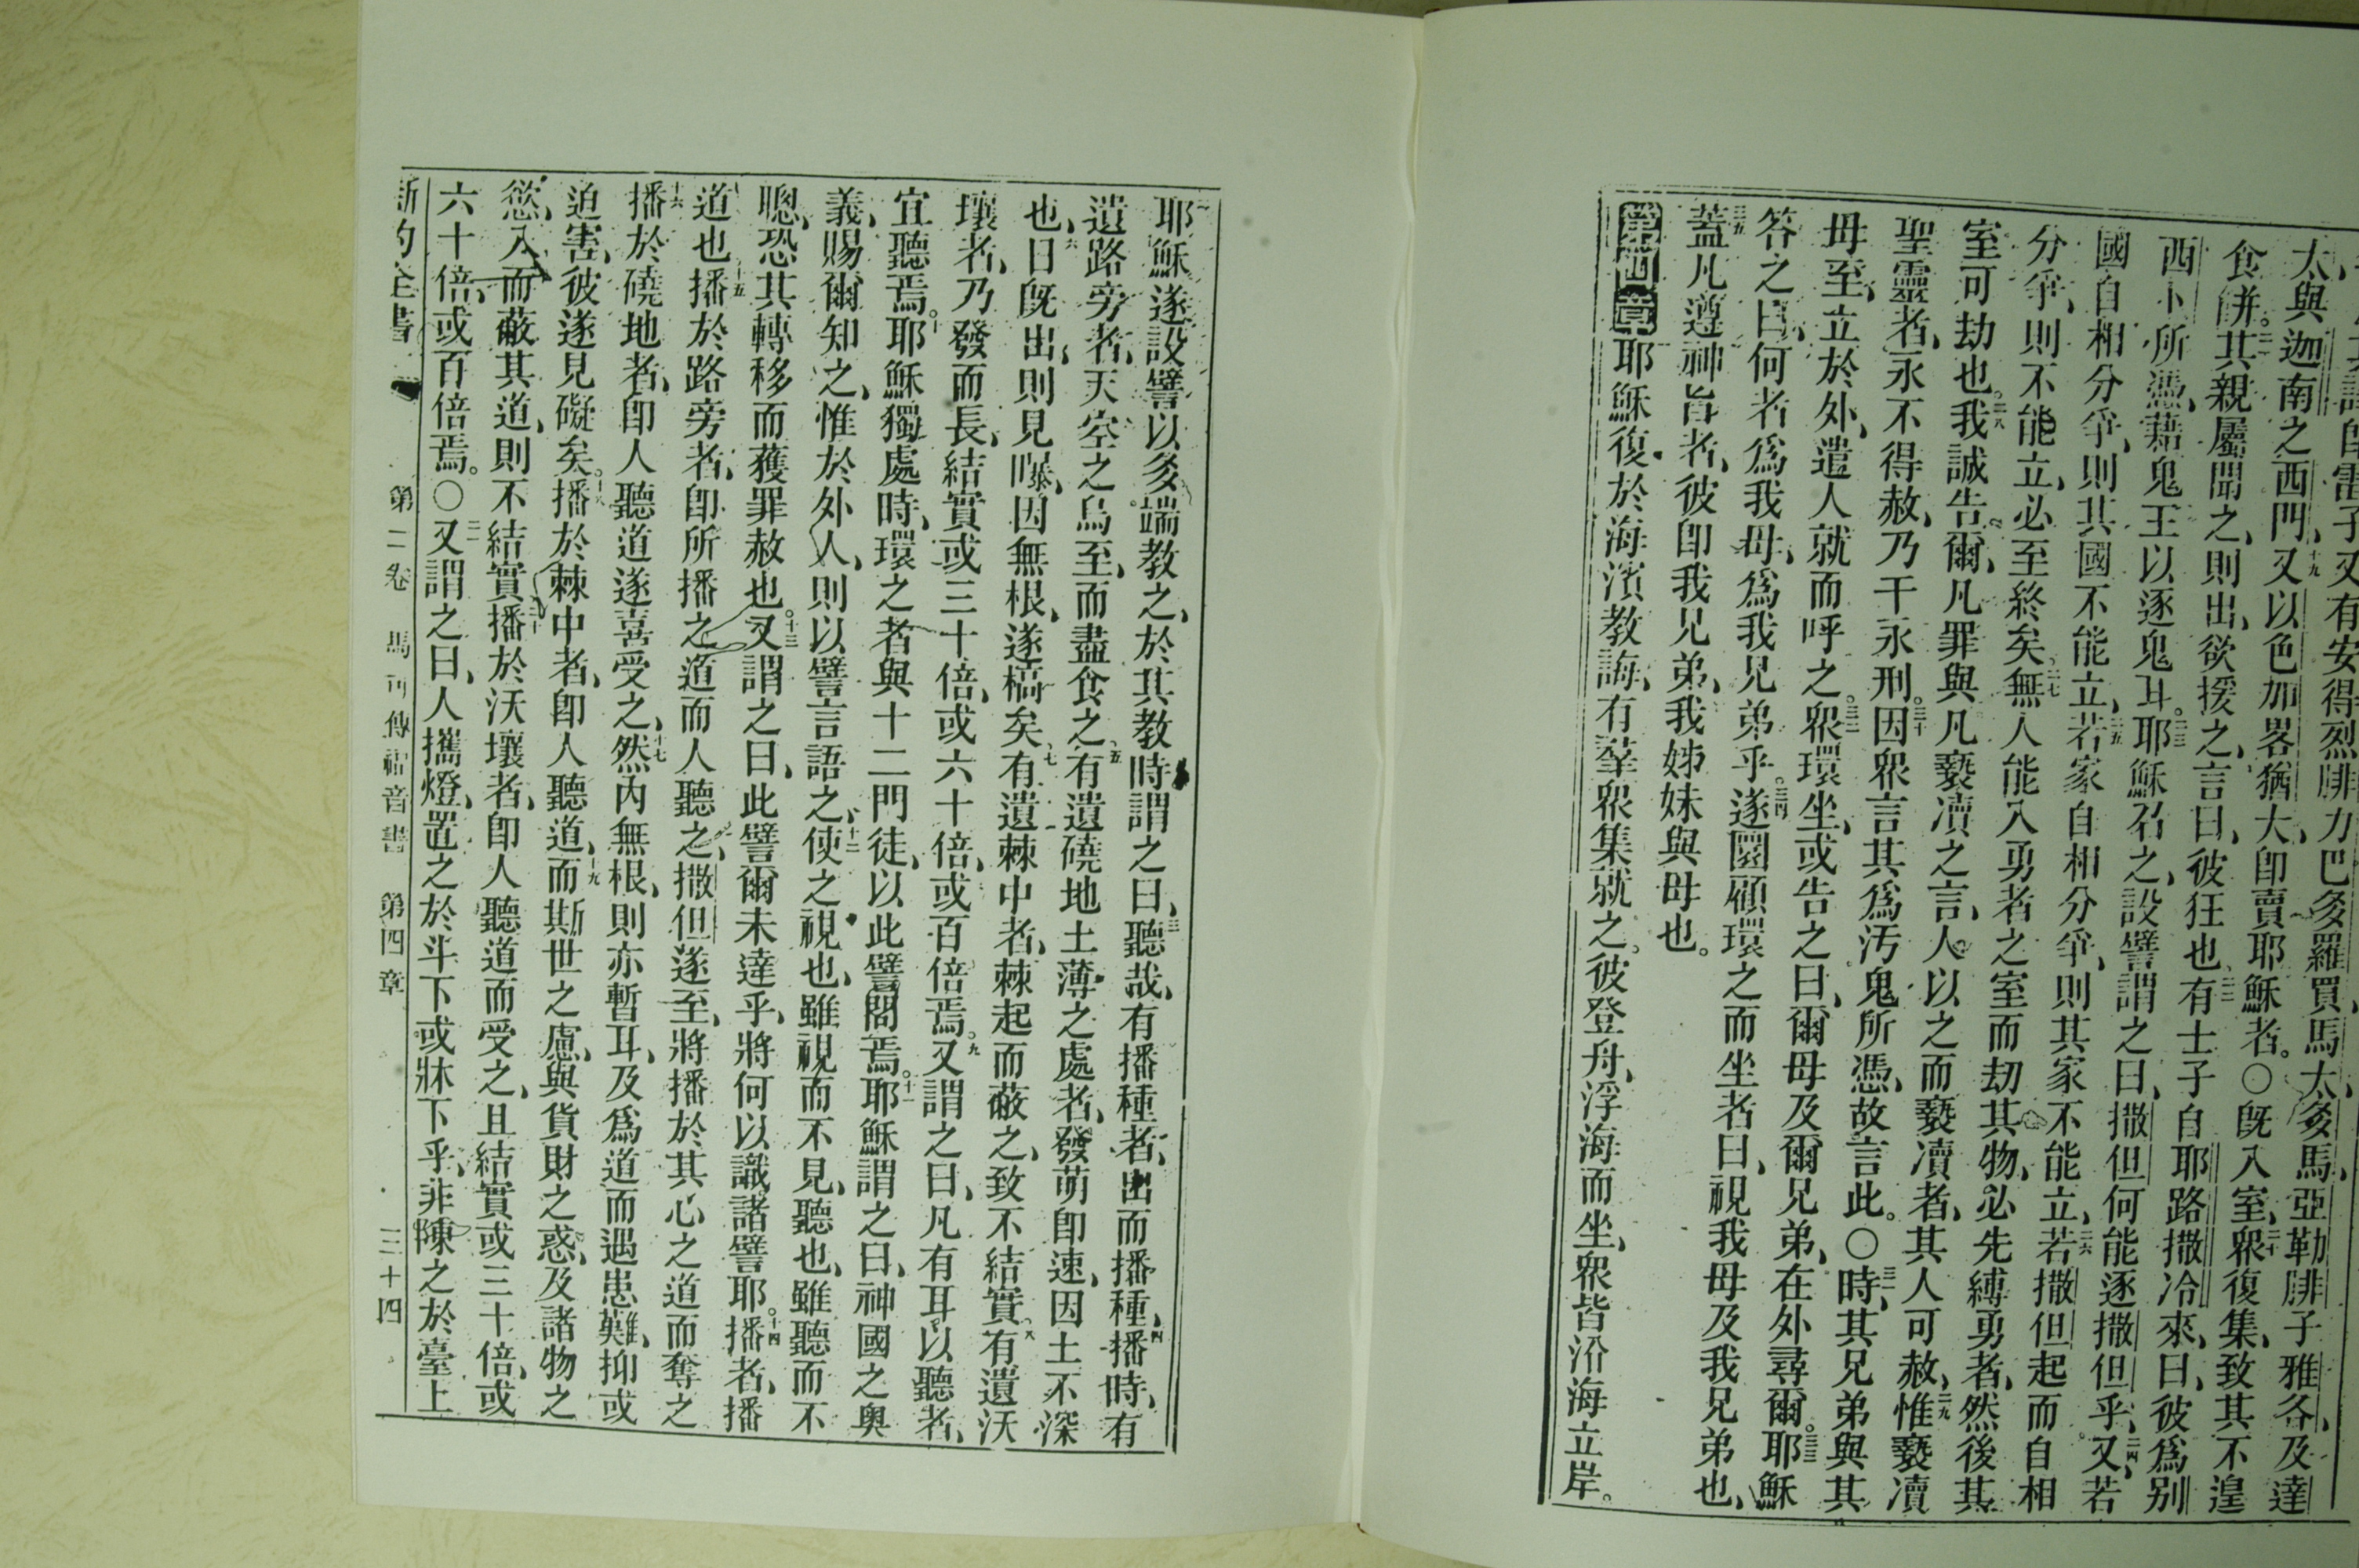 太與迦南之西門十九又以色加畧猶大卽賣耶穌者。〇旣入室二十眾復集致其不遑
食餅二一其親屬聞之則出欲援之言曰彼狂也二二有士子自耶路撒冷來曰彼爲別
西卜所憑藉鬼王以逐鬼耳二三耶穌召之設譬謂之曰撒但何能逐撒但乎二四又若
國自相分爭則其國不能立二五若家自相分爭則其家不能立二六若撒但起而自相
分爭則不能立必至終矣二七無人能入勇者之室而劫其物必先縛勇者然後其
室可劫也二八我誠告爾凡罪與凡褻凟之言人以之而褻凟者其人可赦二九惟褻凟
聖靈者永不得赦乃干永刑三十因眾言其爲汚鬼所憑故言此。〇三一時其兄弟與其
母至立於外遣人就而呼之三二眾環坐或告之曰爾母及爾兄弟在外尋爾三三耶穌
答之曰何者爲我母爲我兄弟乎三四遂圜顧環之而坐者曰視我母及我兄弟也
三五蓋凡遵神旨者彼卽我兄弟我姊妹與母也。
第四章耶穌復於海濱教誨有羣眾集就之。彼登舟浮海而坐眾皆沿海立岸。
二耶穌遂設譬以多端教之於其教時謂之曰三聽哉有播種者出而播種四播時有
遺路旁者天空之鳥至而盡食之五有遺磽地土薄之處者發萌卽速因土不深
也六日旣出則見曝因無根遂槁矣七有遺棘中者棘起而蔽之致不結實八有遺沃
壤者乃發而長結實或三十倍或六十倍或百倍焉。九又謂之曰凡有耳以聽者
宜聽焉。十耶穌獨處時環之者與十二門徒以此譬問焉。十一耶穌謂之曰神國之奥
義賜爾知之惟於外人則以譬言語之十二使之視也雖視而不見聽也雖聽而不
聰恐其轉移而獲罪赦也。十三又謂之曰此譬爾未達乎將何以識諸譬耶。十四播者播
道也十五播於路旁者卽所播之道而人聽之撒但遂至將播於其心之道而奪之
十六播於磽地者卽人聽道遂喜受之十七然內無根則亦暫耳及爲道而遇患難抑或
迫害彼遂見礙矣。十八播於棘中者卽人聽道十九而斯世之慮與貨財之惑及諸物之
慾入而蔽其道則不結實二十播於沃壤者卽人聽道而受之且結實或三十倍或
六十倍或百倍焉。〇二一又謂之曰人攜燈置之於斗下或牀下乎非陳之於臺上
新約全書 第二卷 馬可傳福音書 第四章 三十四